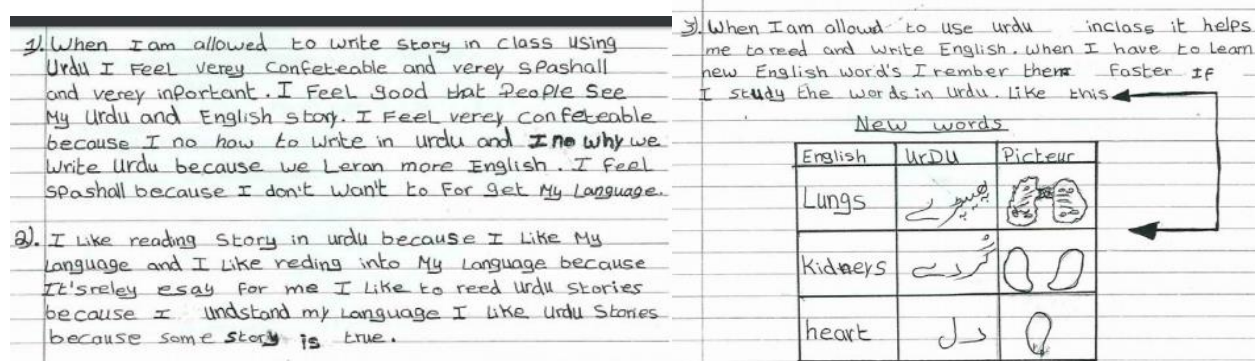 1). When I am allowed to write story in class using
Urdu I Feel verey Confeteable and verey spashall
and verey inportant. I Feel good that People See
My Urdu and English story. I Feel verey confeteable
because I no how to write in urdu and I no why we
write Urdu because we Leran more English. I feel
spashall because I don't wan't to For get My Language.
2). I Like reading Story in urdu because I Like My
Language and I Like reding into My Language because
It's reley esay for me I Like to reed Urdu Stories
because I undstand my Language I Like Urdu Stories
because some story is true.
3). When I am allowd to use urdu inclass it helps
me to reed and write English. when I have to learn
new English word's I rember them faster If
I study the words in urdu. Like this
New words
English UrDU Picteur
Lungs
Kidneys گردے
heart دل